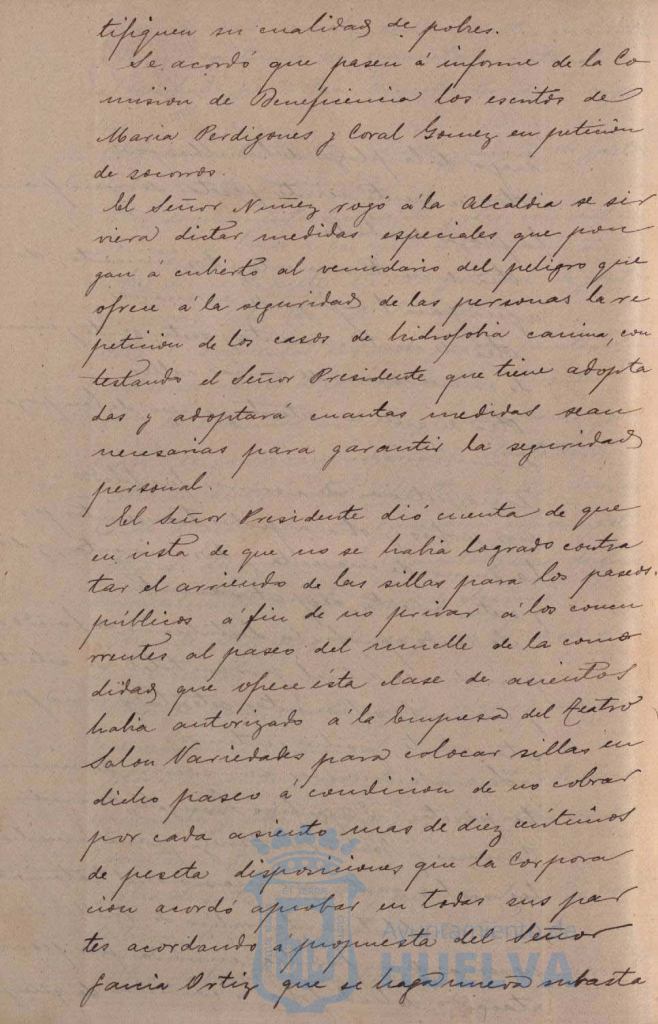 tifiquen su cualidad de pobres.
Se acordó que pasen á informe de la Co
mision de Beneficencia los escritos de
Maria Perdigones y Coral Gomez en peticion
de socorros.
El Señor Nuñez rogó á la Alcaldia se sir
viera dictar medidas especiales que pon
gan á cubierto al vecindario del peligro que
ofrece á la seguridad de las personas la re
peticion de los casos de hidrofobia canina, con
testando el Señor Presidente que tiene adopta
das y adoptará cuantas medidas sean
necesarias para garantir la seguridad
personal.
El Señor Presidente dió cuenta de que
en vista de que no se habia logrado contra
tar el arriendo de las sillas para los paseos
públicos á fin de no privar á los concu
rrentes al paseo del muelle de la como
didad que ofrece ésta clase de asientos
habia autorizado á la Empresa del teatro
Salon Variedades para colocar sillas en
dicho paseo á condicion de no cobrar
por cada asiento mas de diez céntimos
de peseta disposiciones que la Corpora
cion acordó aprobar en todas sus par
tes acordando á propuesta del Señor
Garcia Ortiz que se haga nueva subasta
Ayuntamiento de
HUELVA